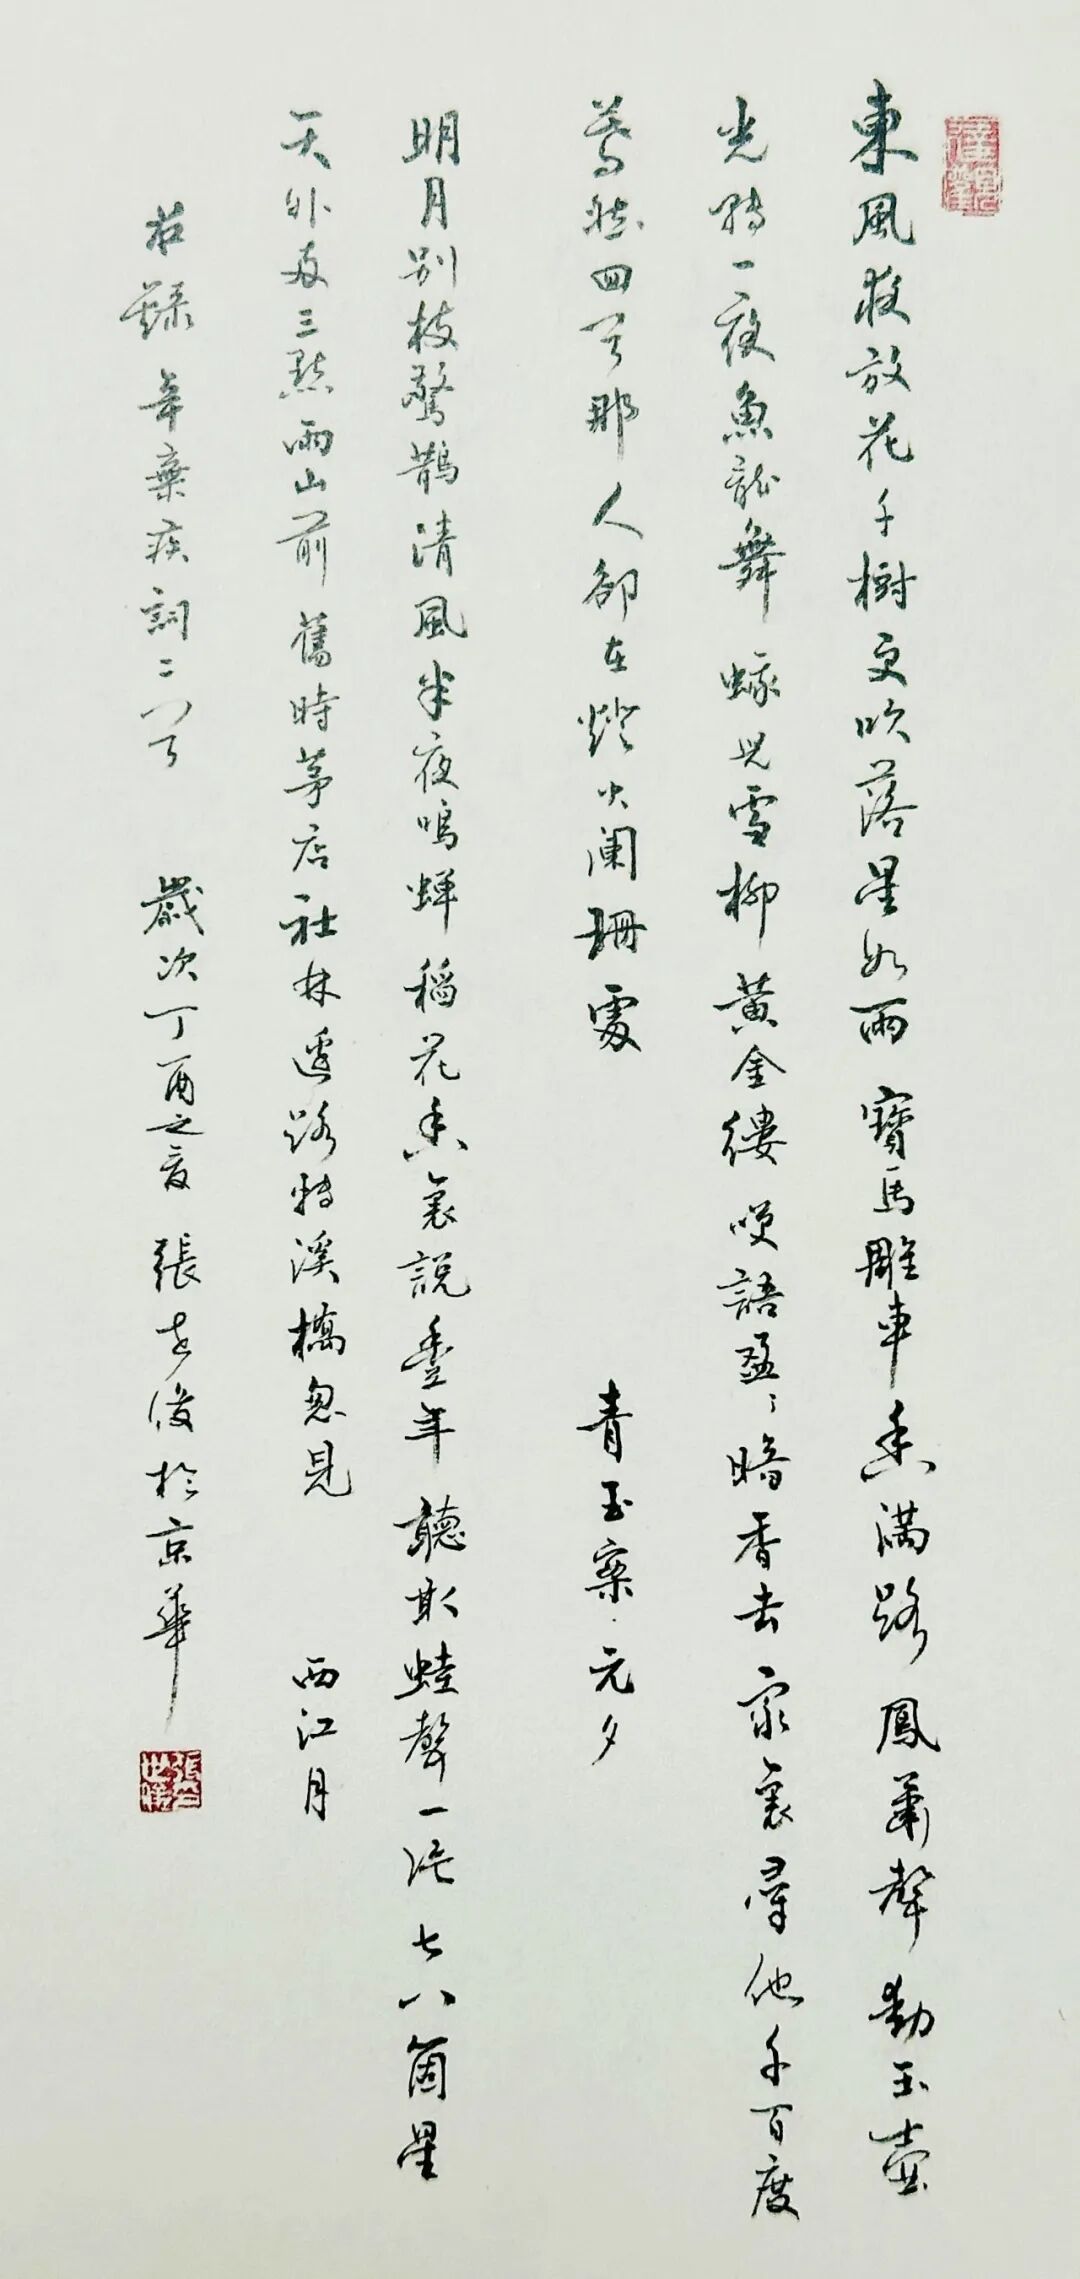 東風夜放花千樹更吹落星如雨 寶馬雕車香滿路 鳳簫聲動玉壺
光轉一夜魚龍舞 蛾兒雪柳黃金縷 笑語盈々暗香去 眾裏尋他千百度
驀然回首那人卻在燈火闌珊處 青玉案·元夕
明月別枝驚鵲清風半夜鳴蟬稻花香裏說豐年 聽取蛙聲一片 七八箇星
天外兩三點雨山前 舊時茅店社林邊路轉溪橋忽見 西江月
錄 辛棄疾詞二首 歲次丁酉之夏 張俊於京華